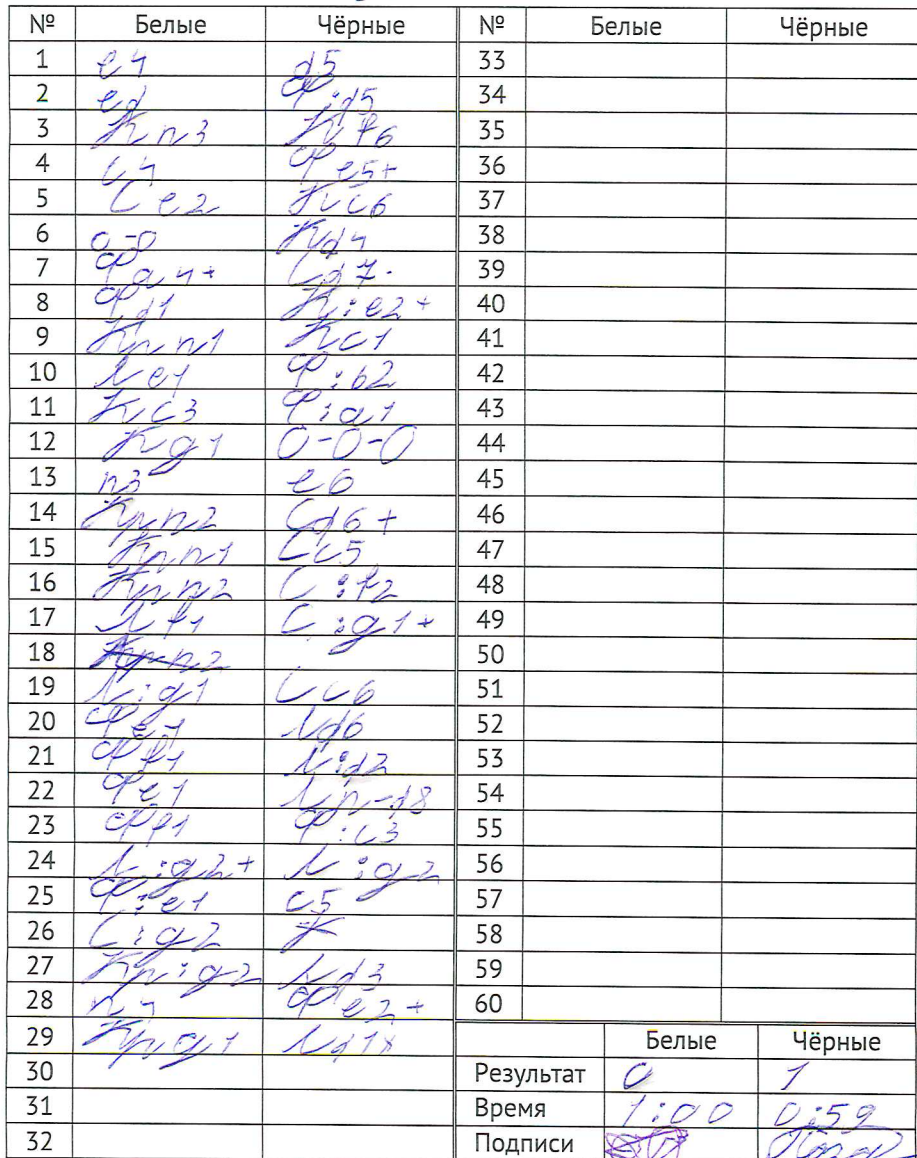 № Белые Чёрные № Белые Чёрные
1 e4 d5 33
2 ed Ф:d5 34
3 Кh3 Кf6 35
4 c4 Фe5+ 36
5 Сe2 Кc6 37
6 0-0 Кd4 38
7 Фa4+ Сd7 39
8 Фd1 К:e2+ 40
9 Крh1 Кc1 41
10 Лe1 Ф:b2 42
11 Кc3 Ф:a1 43
12 Кg1 0-0-0 44
13 h3 e6 45
14 Крh2 Сd6+ 46
15 Крh1 Сc5 47
16 Крh2 С:f2 48
17 Лf1 С:g1+ 49
18 Крh2 50
19 Л:g1 Сc6 51
20 Фe1 Лd6 52
21 Фf1 Л:d2 53
22 Фe1 Лh-d8 54
23 Фf1 Ф:c3 55
24 Л:g2+ Л:g2 56
25 Ф:e1 c5 57
26 С:g2 58
27 Кр:g2 Лd3 59
28 h4 Фe2+ 60
29 Крg1 Лd1x Белые Чёрные
30 Результат 0 1
31 Время 1:00 0:59
32 Подписи